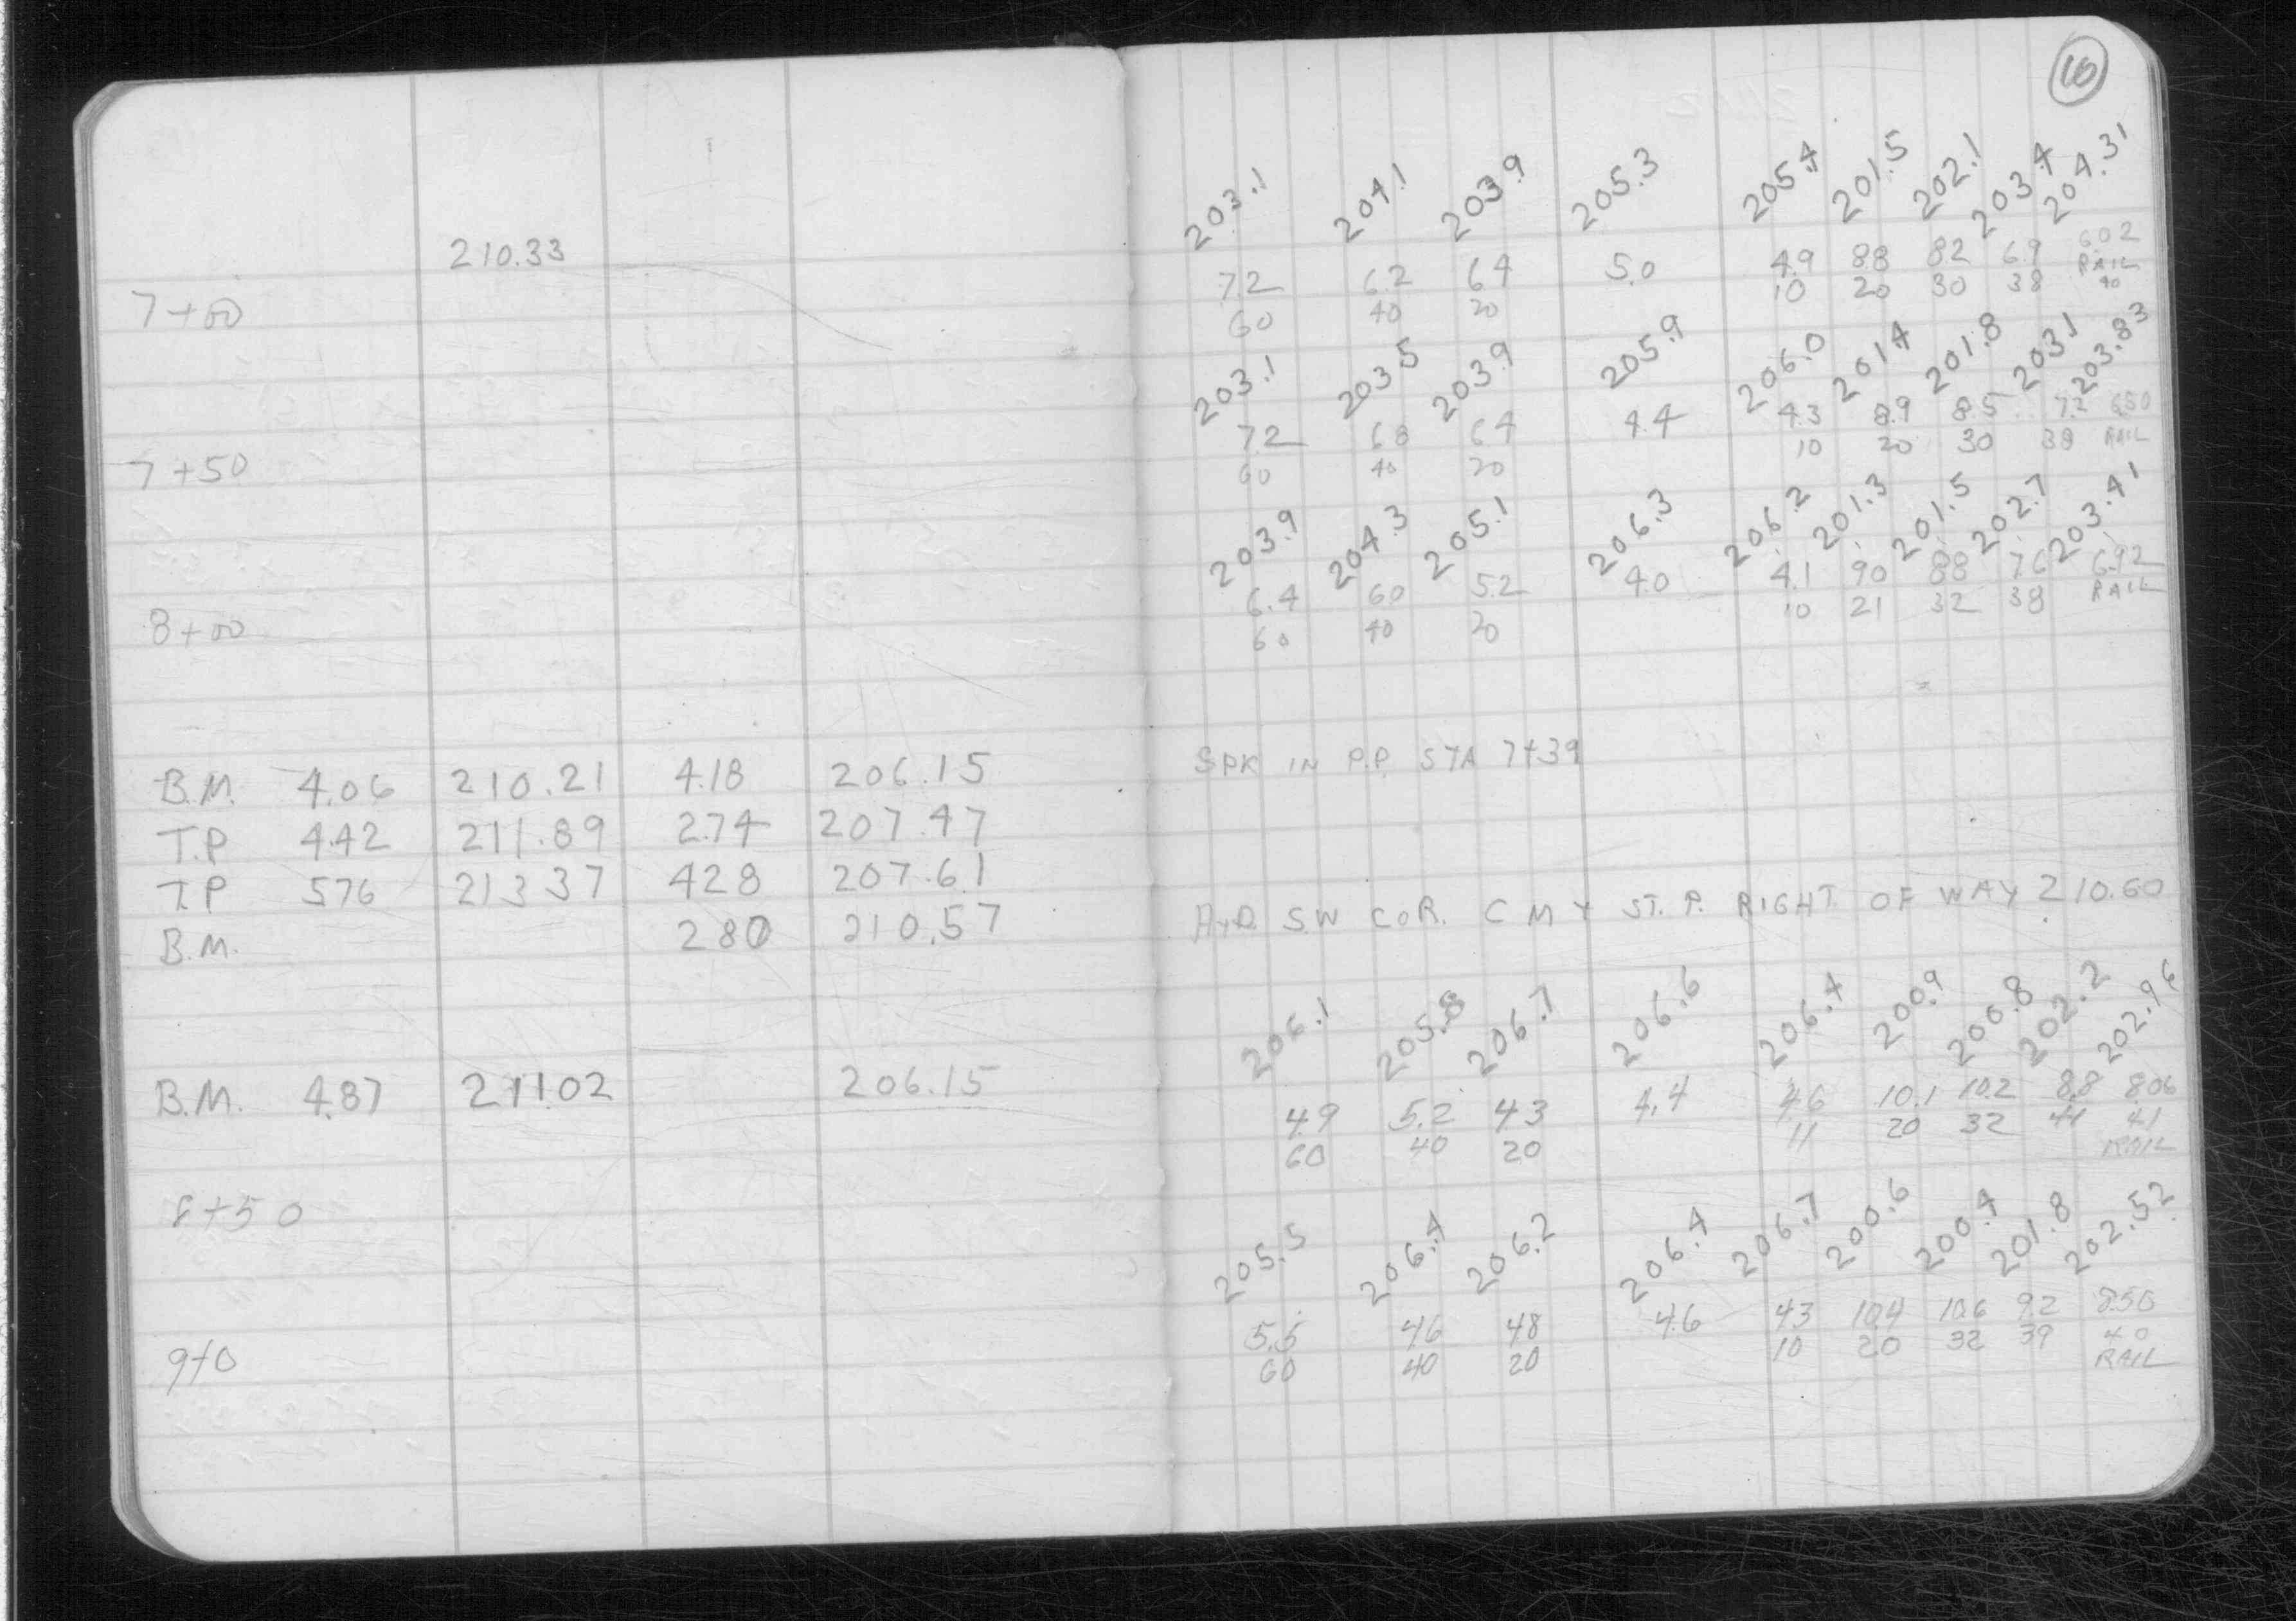 10
203.1 204.1 203.9 205.3 205.4 201.5 202.1 203.4 204.31
210.33
7.2 6.2 6.4 5.0 4.9 8.8 8.2 6.9 6.02
RAIL
7+00 60 40 20 10 20 30 38 40
203.1 203.5 203.9 205.9 206.0 201.4 201.8 203.1 203.83
7.2 6.8 6.4 4.4 4.3 8.9 8.5 7.2 6.50
7+50 60 40 20 10 20 30 38 RAIL
203.9 204.3 205.1 206.3 206.2 201.3 201.5 202.7 203.41
6.4 6.0 5.2 4.0 4.1 9.0 8.8 7.6 6.92
8+00 60 40 20 10 21 32 38 RAIL
B.M. 4.06 210.21 4.18 206.15 SPK IN P.P. STA 7+39
T.P 4.42 211.89 2.74 207.47
T.P 5.76 213.37 4.28 207.61
B.M. 2.80 210.57 HYD. SW COR. C M Y ST. P. RIGHT OF WAY 210.60
206.1 205.8 206.7 206.6 206.4 200.9 200.8 202.2 202.96
B.M. 4.87 211.02 206.15
4.9 5.2 4.3 4.4 4.6 10.1 10.2 8.8 8.06
60 40 20 11 20 32 41
RAIL
8+50
205.5 206.4 206.2 206.4 206.7 200.6 200.4 201.8 202.52
5.5 4.6 4.8 4.6 4.3 10.4 10.6 9.2 8.50
9+0 60 40 20 10 20 32 39 40
RAIL